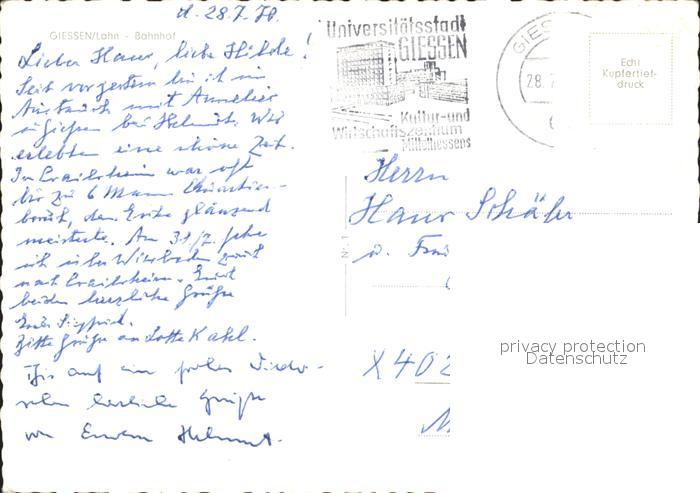 d. 28.7.70.
GIESSEN/Lahn - Bahnhof
Lieber Hans, liebe Hilde!
Seit vorgestern bin ich im
Austausch mit Annelies
in Giessen bei Helmut. Wir
erleben eine schöne Zeit.
In Crailsheim war oft
bis zu 6 Mann
die Erika glänzend
meisterte. Am 31./7. fahre
ich über Wiesbaden zurück
nach Crailsheim. Euch
beiden herzliche Grüße
Euer Siegfried.
Bitte Grüße an Lotte Kahl.
Bis auf ein frohes Wieder-
sehen herzliche Grüße
von Eurem Helmut.
Universitätsstadt
GIESSEN
Kultur- und
Wirtschaftszentrum
Mittelhessens
GIES
28.7
Echt
Kupfertief-
druck
Herrn
Hans Schäfer
u. Frau
Nr. 1
X402
privacy protection
Datenschutz